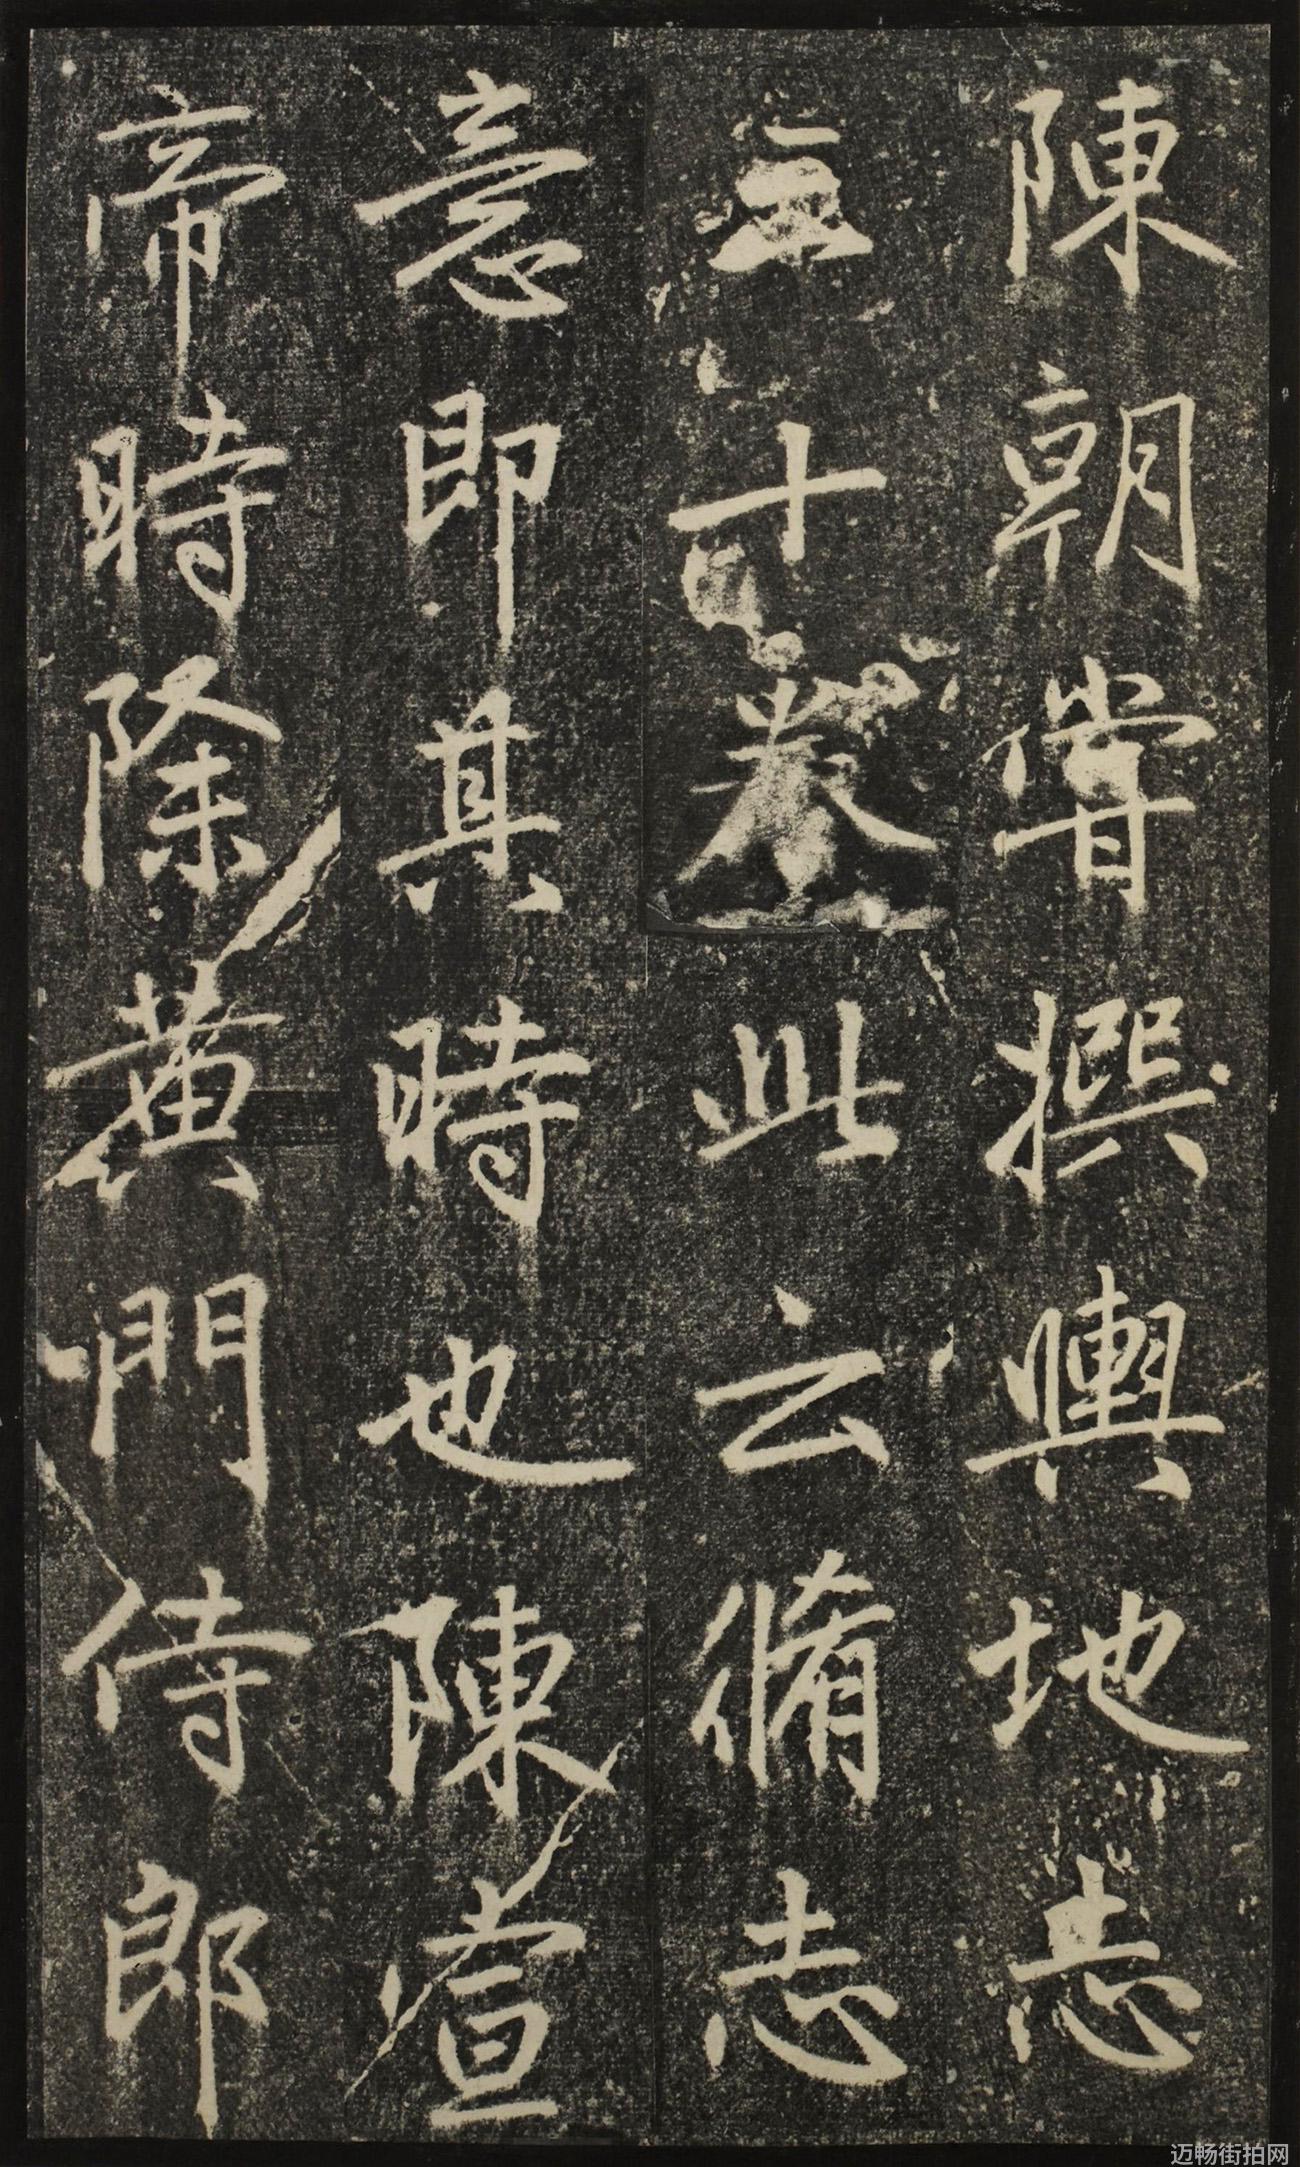 陳朝嘗撰輿地志
三十卷此云脩志
意即其時也陳宣
帝時除黃門侍郎
迈畅街拍网